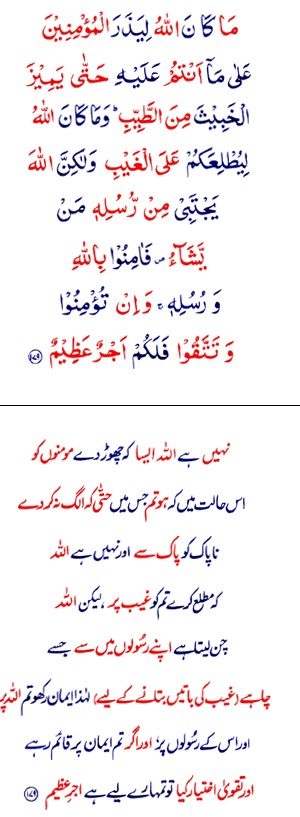 مَا كَانَ اللّٰهُ لِيَذَرَ الْمُؤْمِنِيْنَ
عَلٰى مَاۤ اَنْتُمْ عَلَيْهِ حَتّٰى يَمِيْزَ
الْخَبِيْثَ مِنَ الطَّيِّبِ ؕ وَمَا كَانَ اللّٰهُ
لِيُطْلِعَكُمْ عَلَى الْغَيْبِ وَلٰكِنَّ اللّٰهَ
يَجْتَبِىْ مِنْ رُّسُلِهٖ مَنْ
يَّشَآءُ ۖ فَاٰمِنُوْا بِاللّٰهِ
وَ رُسُلِهٖ ۚ وَاِنْ تُؤْمِنُوْا
وَ تَتَّقُوْا فَلَكُمْ اَجْرٌ عَظِيْمٌ ۝۱۷۹
نہیں ہے اللہ ایسا کہ چھوڑ دے مومنوں کو
اس حالت میں کہ ہو تم جس میں حتٰی کہ الگ نہ کر دے
ناپاک کو پاک سے اور نہیں ہے اللہ
کہ مطلع کرے تم کو غیب پر ، لیکن اللہ
چن لیتا ہے اپنے رسولوں میں سے جسے
چاہے (غیب کی باتیں بتانے کے لیے) لہٰذا ایمان رکھو تم اللہ پر
اور اس کے رسولوں پر، اور اگر تم ایمان پر قائم رہے
اور تقویٰ اختیار کیا تو تمہارے لیے ہے اجرِ عظیم ۝۱۷۹